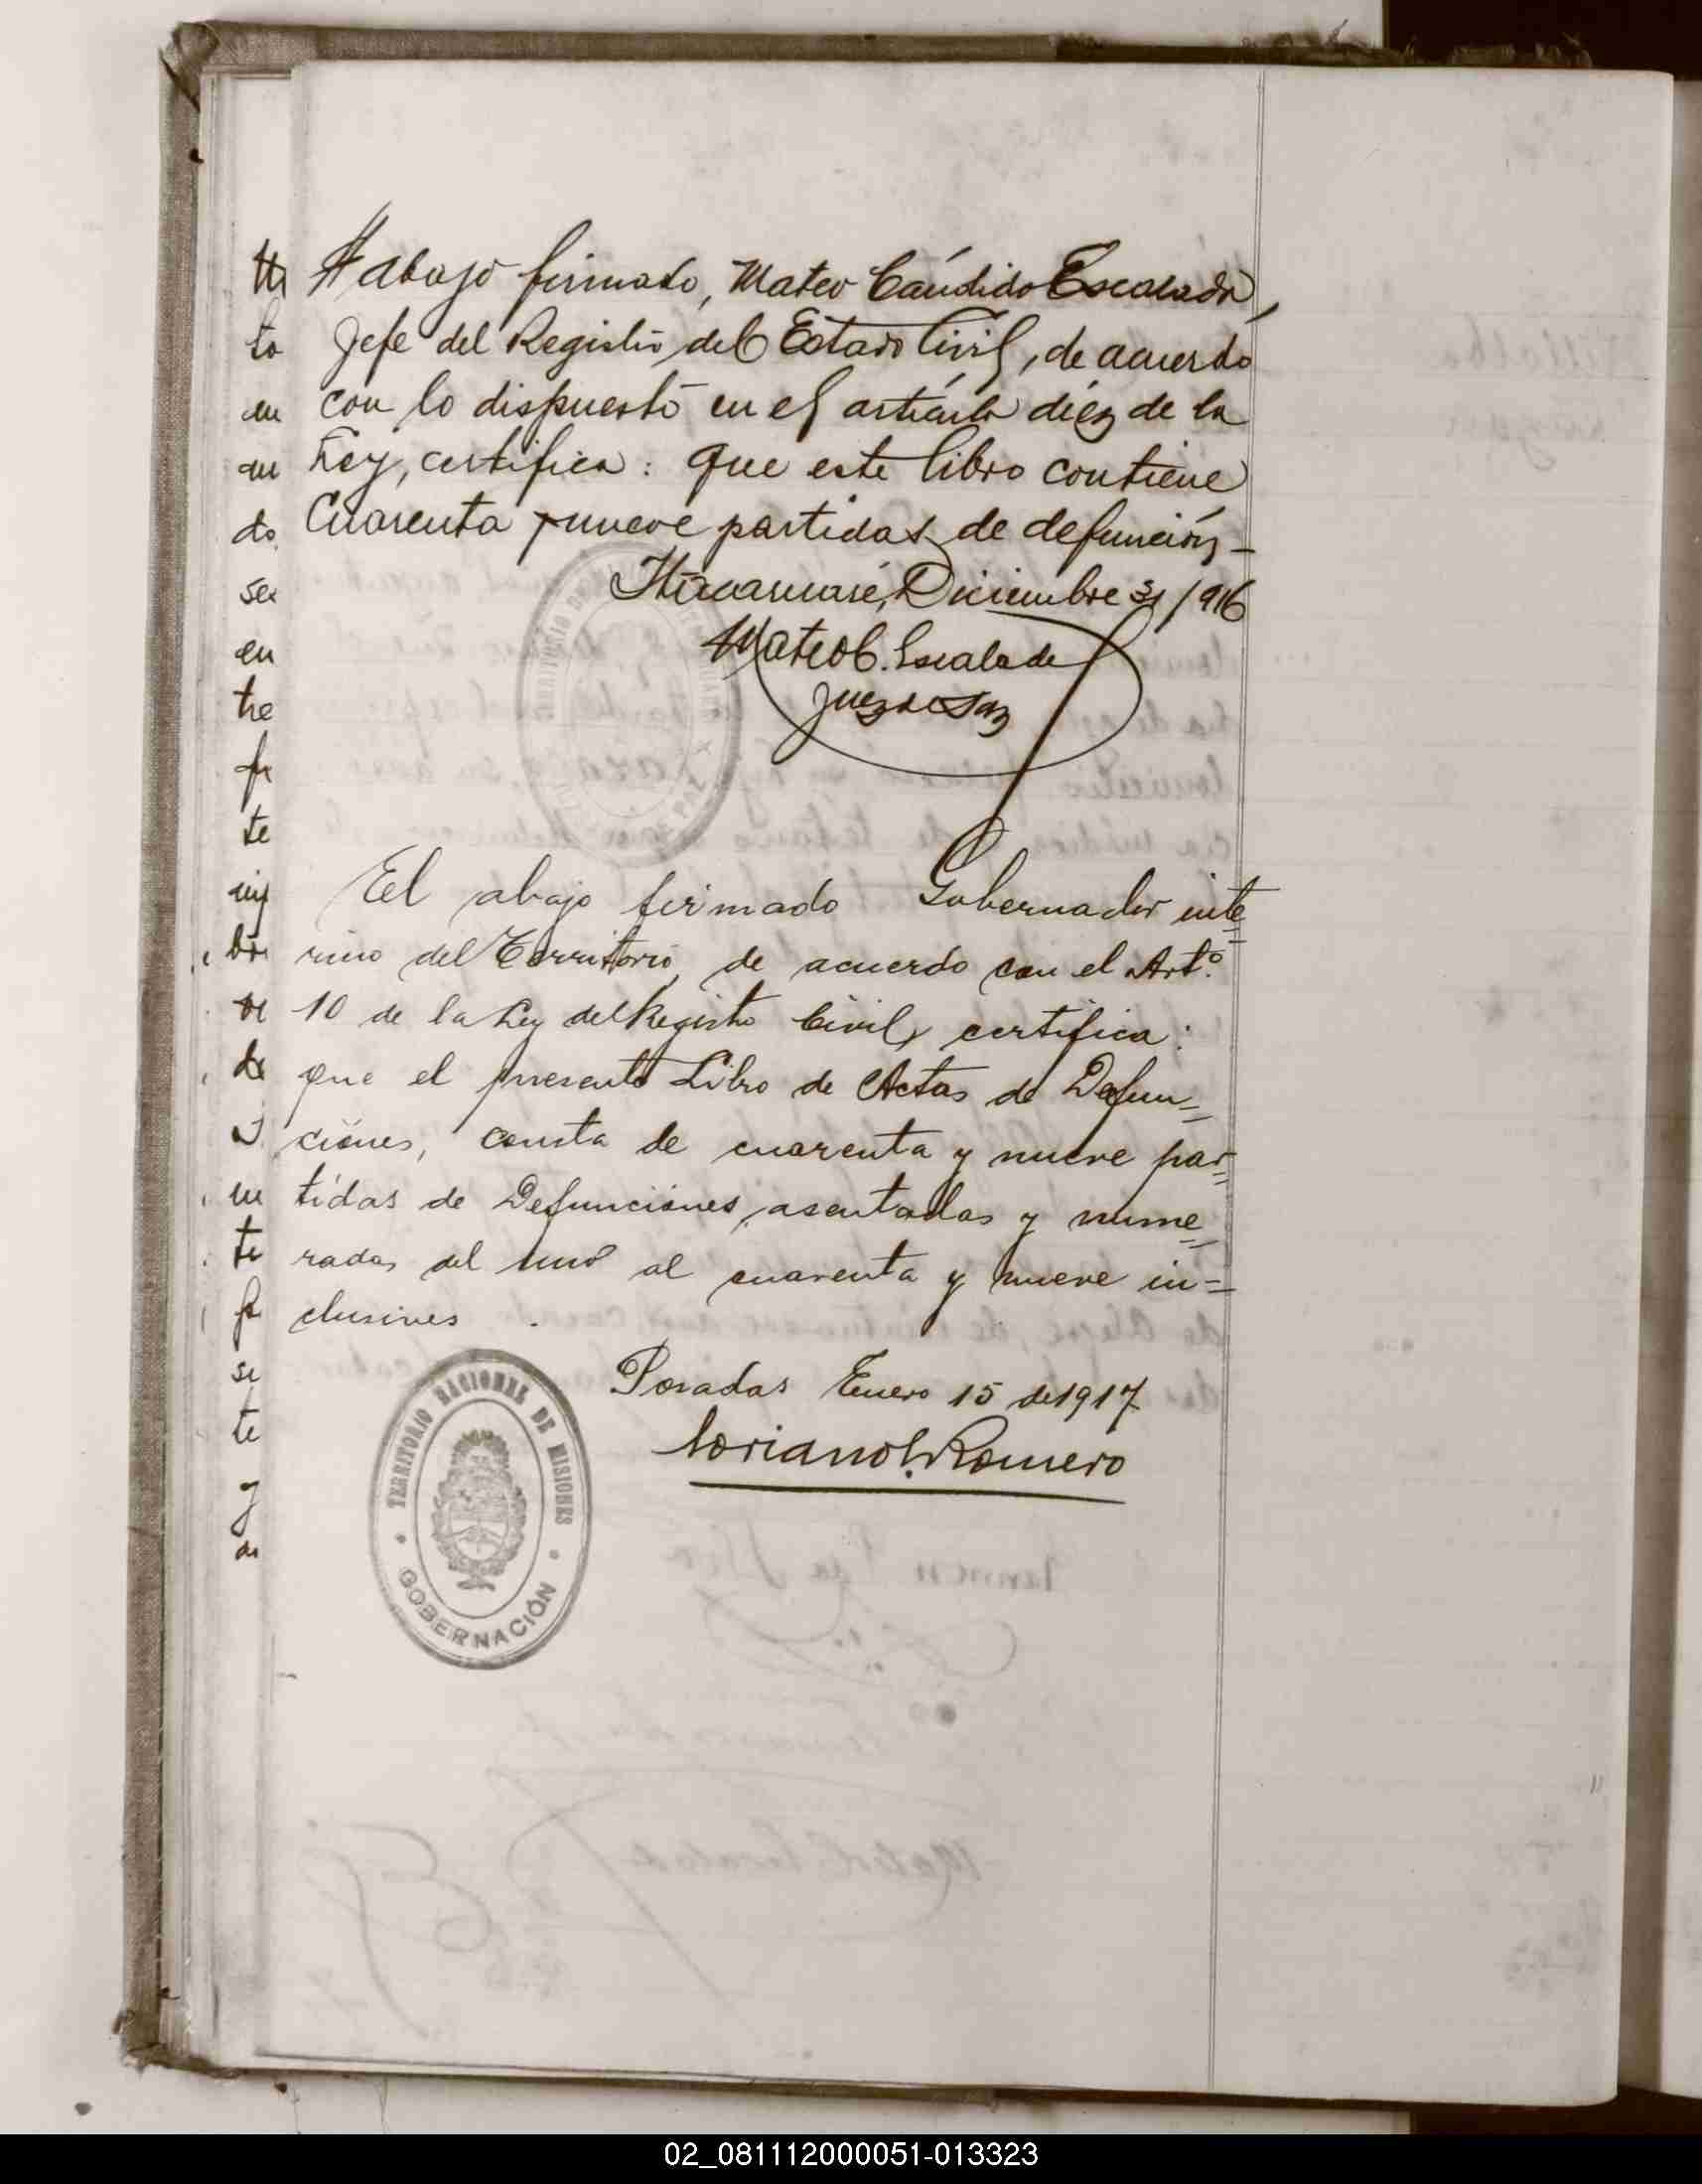 El abajo firmado, Mateo Cándido Escalada,
Jefe del Registro del Estado Civil, de acuerdo
con lo dispuesto en el artículo diéz de la
Ley, certifica: que este libro contiene
Cuarenta y nueve partidas de defunción_
Itacaruaré, Diciembre 31/916
Mateo C. Escalada
Juez de Paz
El abajo firmado Gobernador inte=
rino del Territorio, de acuerdo con el Artº.
10 de la Ley del Registro Civil, certifica:
que el presente Libro de Actas de Defun=
ciones, consta de cuarenta y nueve par=
tidas de Defunciones, asentadas y nume=
radas del uno al cuarenta y nueve in=
clusives.
Posadas Enero 15 de 1917
Soriano L. Romero
TERRITORIO NACIONAL DE MISIONES
GOBERNACIÓN
to
do
se
en
tre
te
de
te
se
te
y
02_081112000051-013323